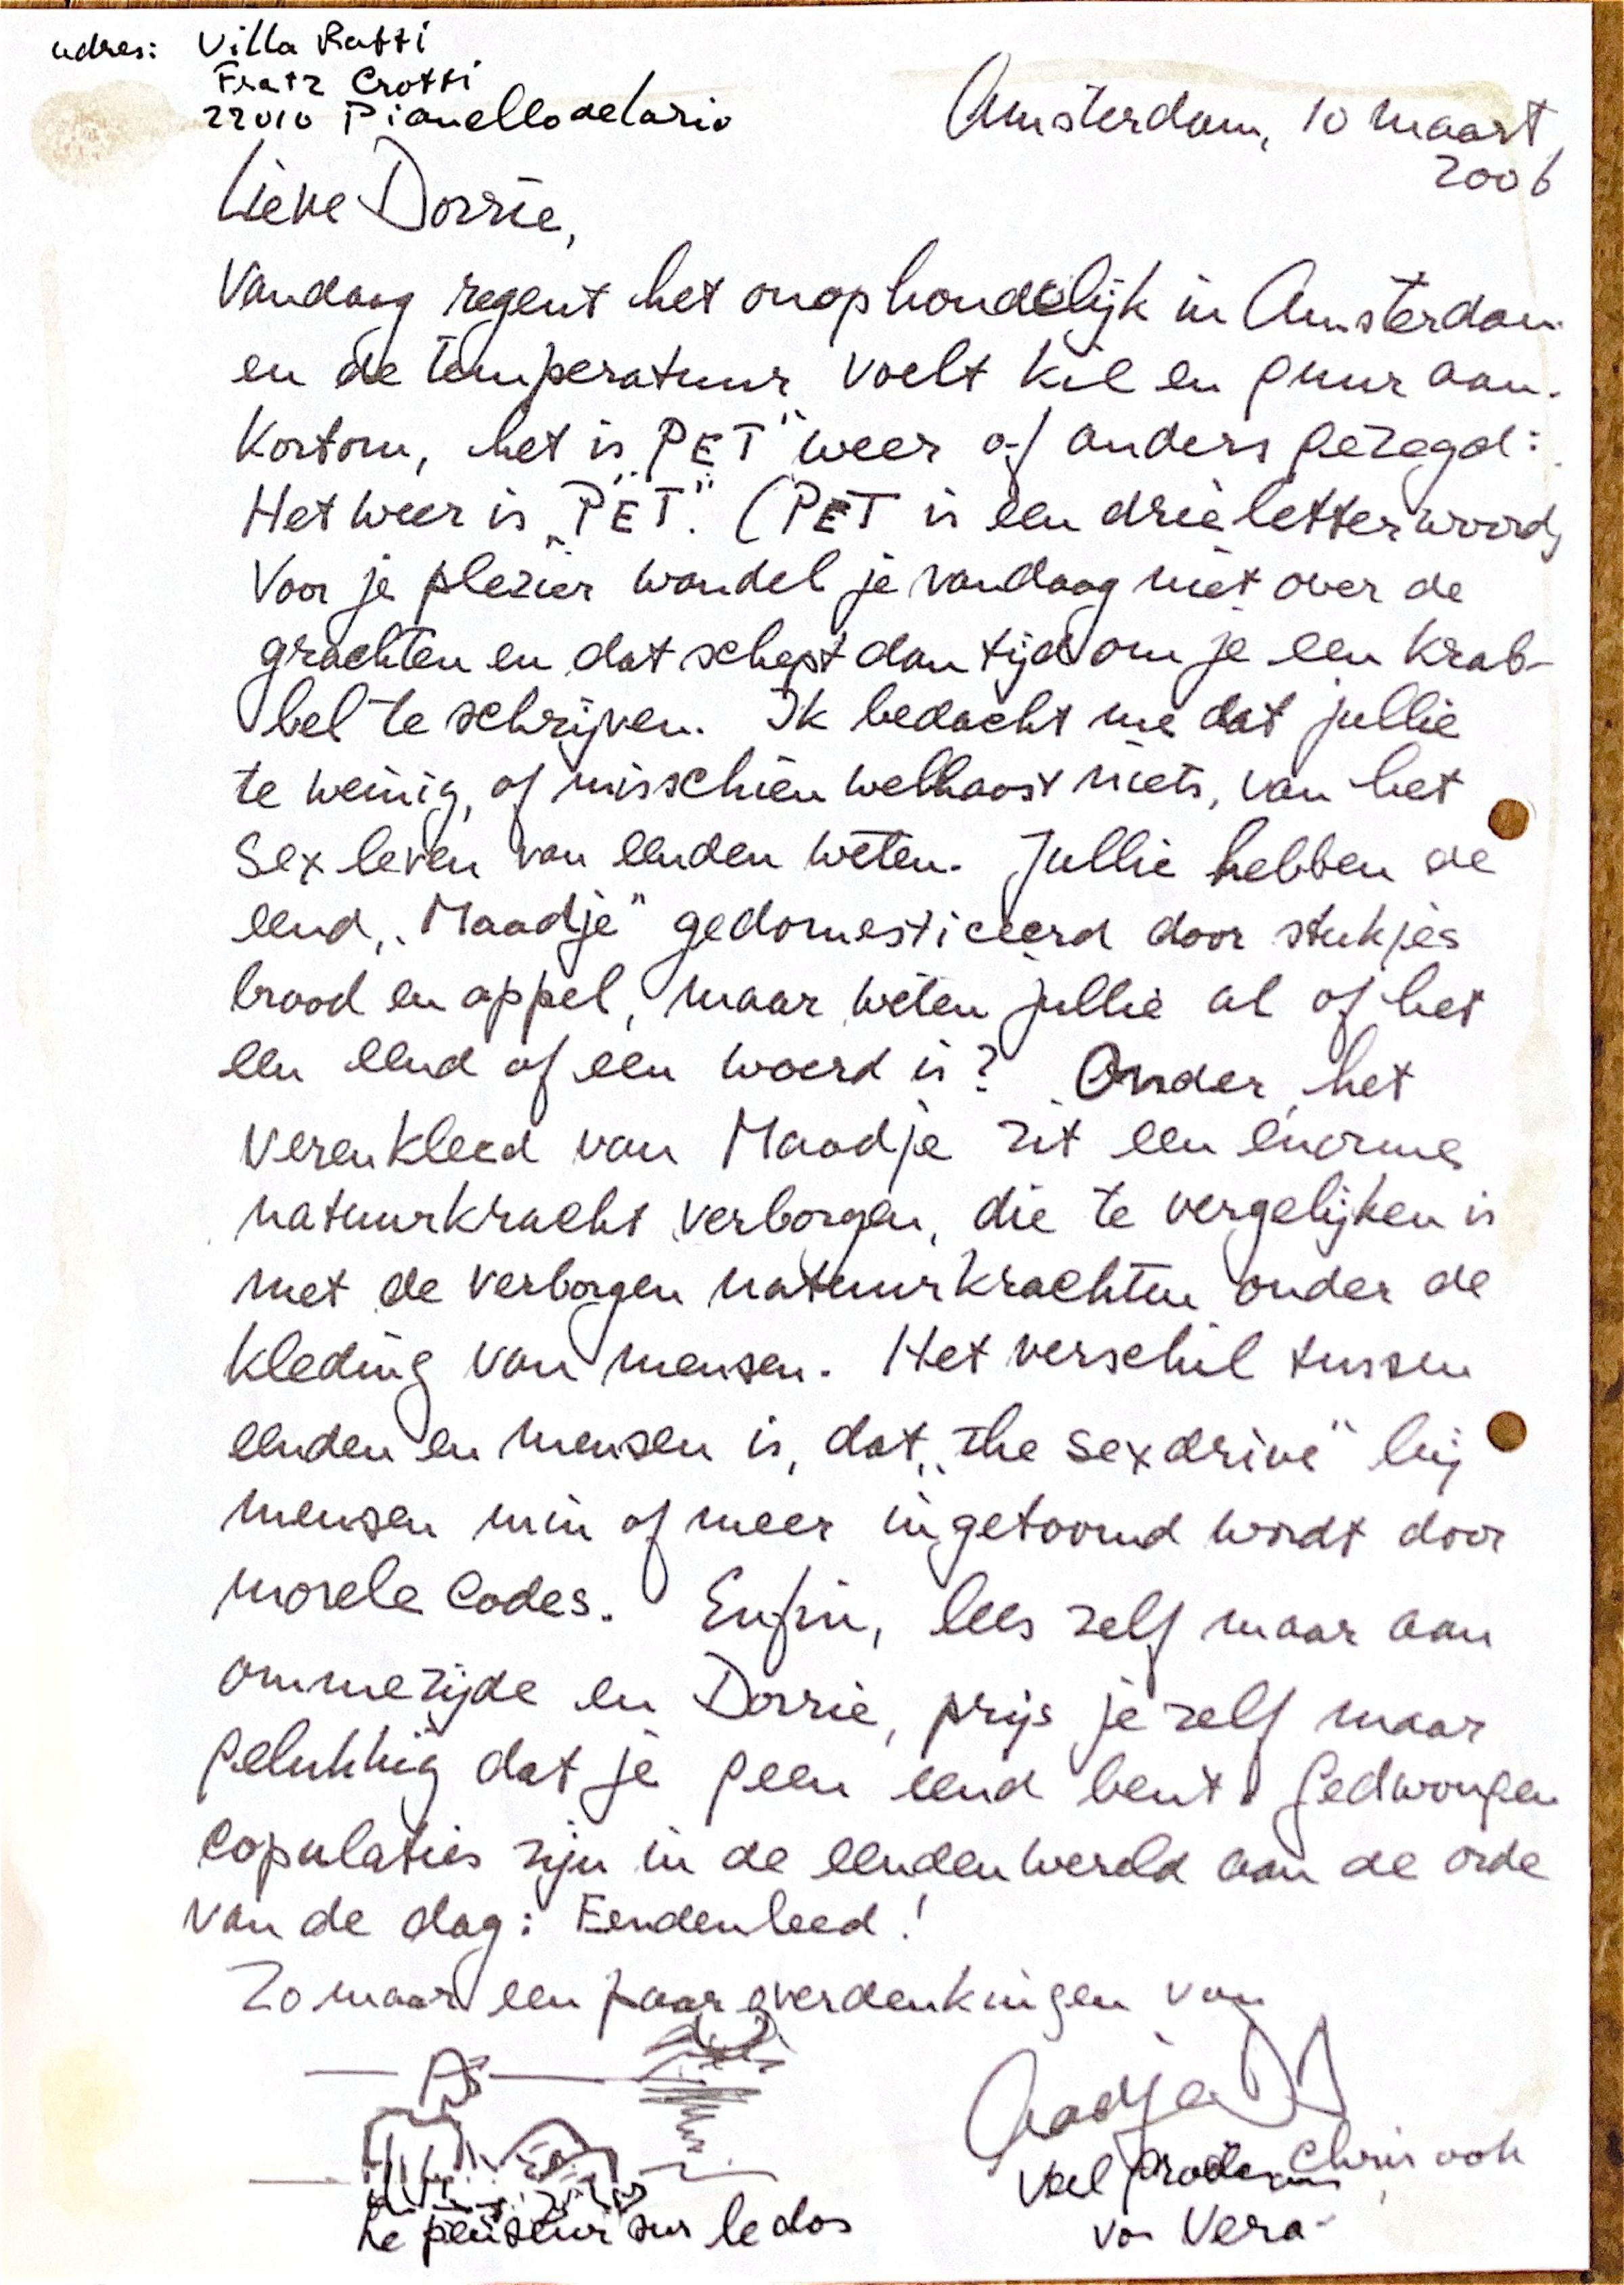 adres: Villa Ratti
Fratz Crotti
22010 Pianello de Lario
Amsterdam, 10 maart,
2006
Lieve Dorrie,
Vandaag regent het onophoudelijk in Amsterdam
en de temperatuur voelt kil en guur aan.
Kortom, het is „PET" weer of anders gezegd:
Het weer is „PET". (PET is een drieletterwoord)
Voor je plezier wandel je vandaag niet over de
grachten en dat schept dan tijd om je een krab-
bel te schrijven. Ik bedacht me dat jullie
te weinig, of misschien welhaast niets, van het
sexleven van eenden weten. Jullie hebben de
eend „Maadje" gedomesticeerd door stukjes
brood en appel, maar weten jullie al of het
een eend of een woerd is? Onder het
verenkleed van Maadje zit een enorme
natuurkracht verborgen, die te vergelijken is
met de verborgen natuurkrachten onder de
kleding van mensen. Het verschil tussen
eenden en mensen is, dat „the sexdrive" bij
mensen min of meer ingetoomd wordt door
morele codes. Enfin, lees zelf maar aan
ommezijde en Dorrie, prijs je zelf maar
gelukkig dat je geen eend bent. Gedwongen
copulaties zijn in de eendenwereld aan de orde
van de dag: Eendenleed!
Zo maar een paar overdenkingen van
Aadje
Chris ook
Veel
van Vera
Le penseur sur le dos